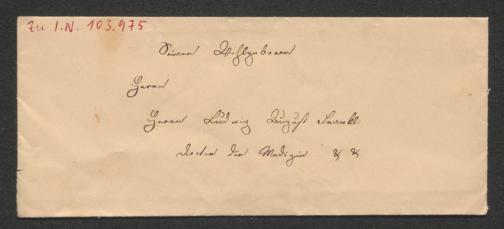 Zu I.N. 103.975
Seiner Wohlgeboren
Herrn
Herrn Ludwig August Frankl
Doctor der Medizin & &